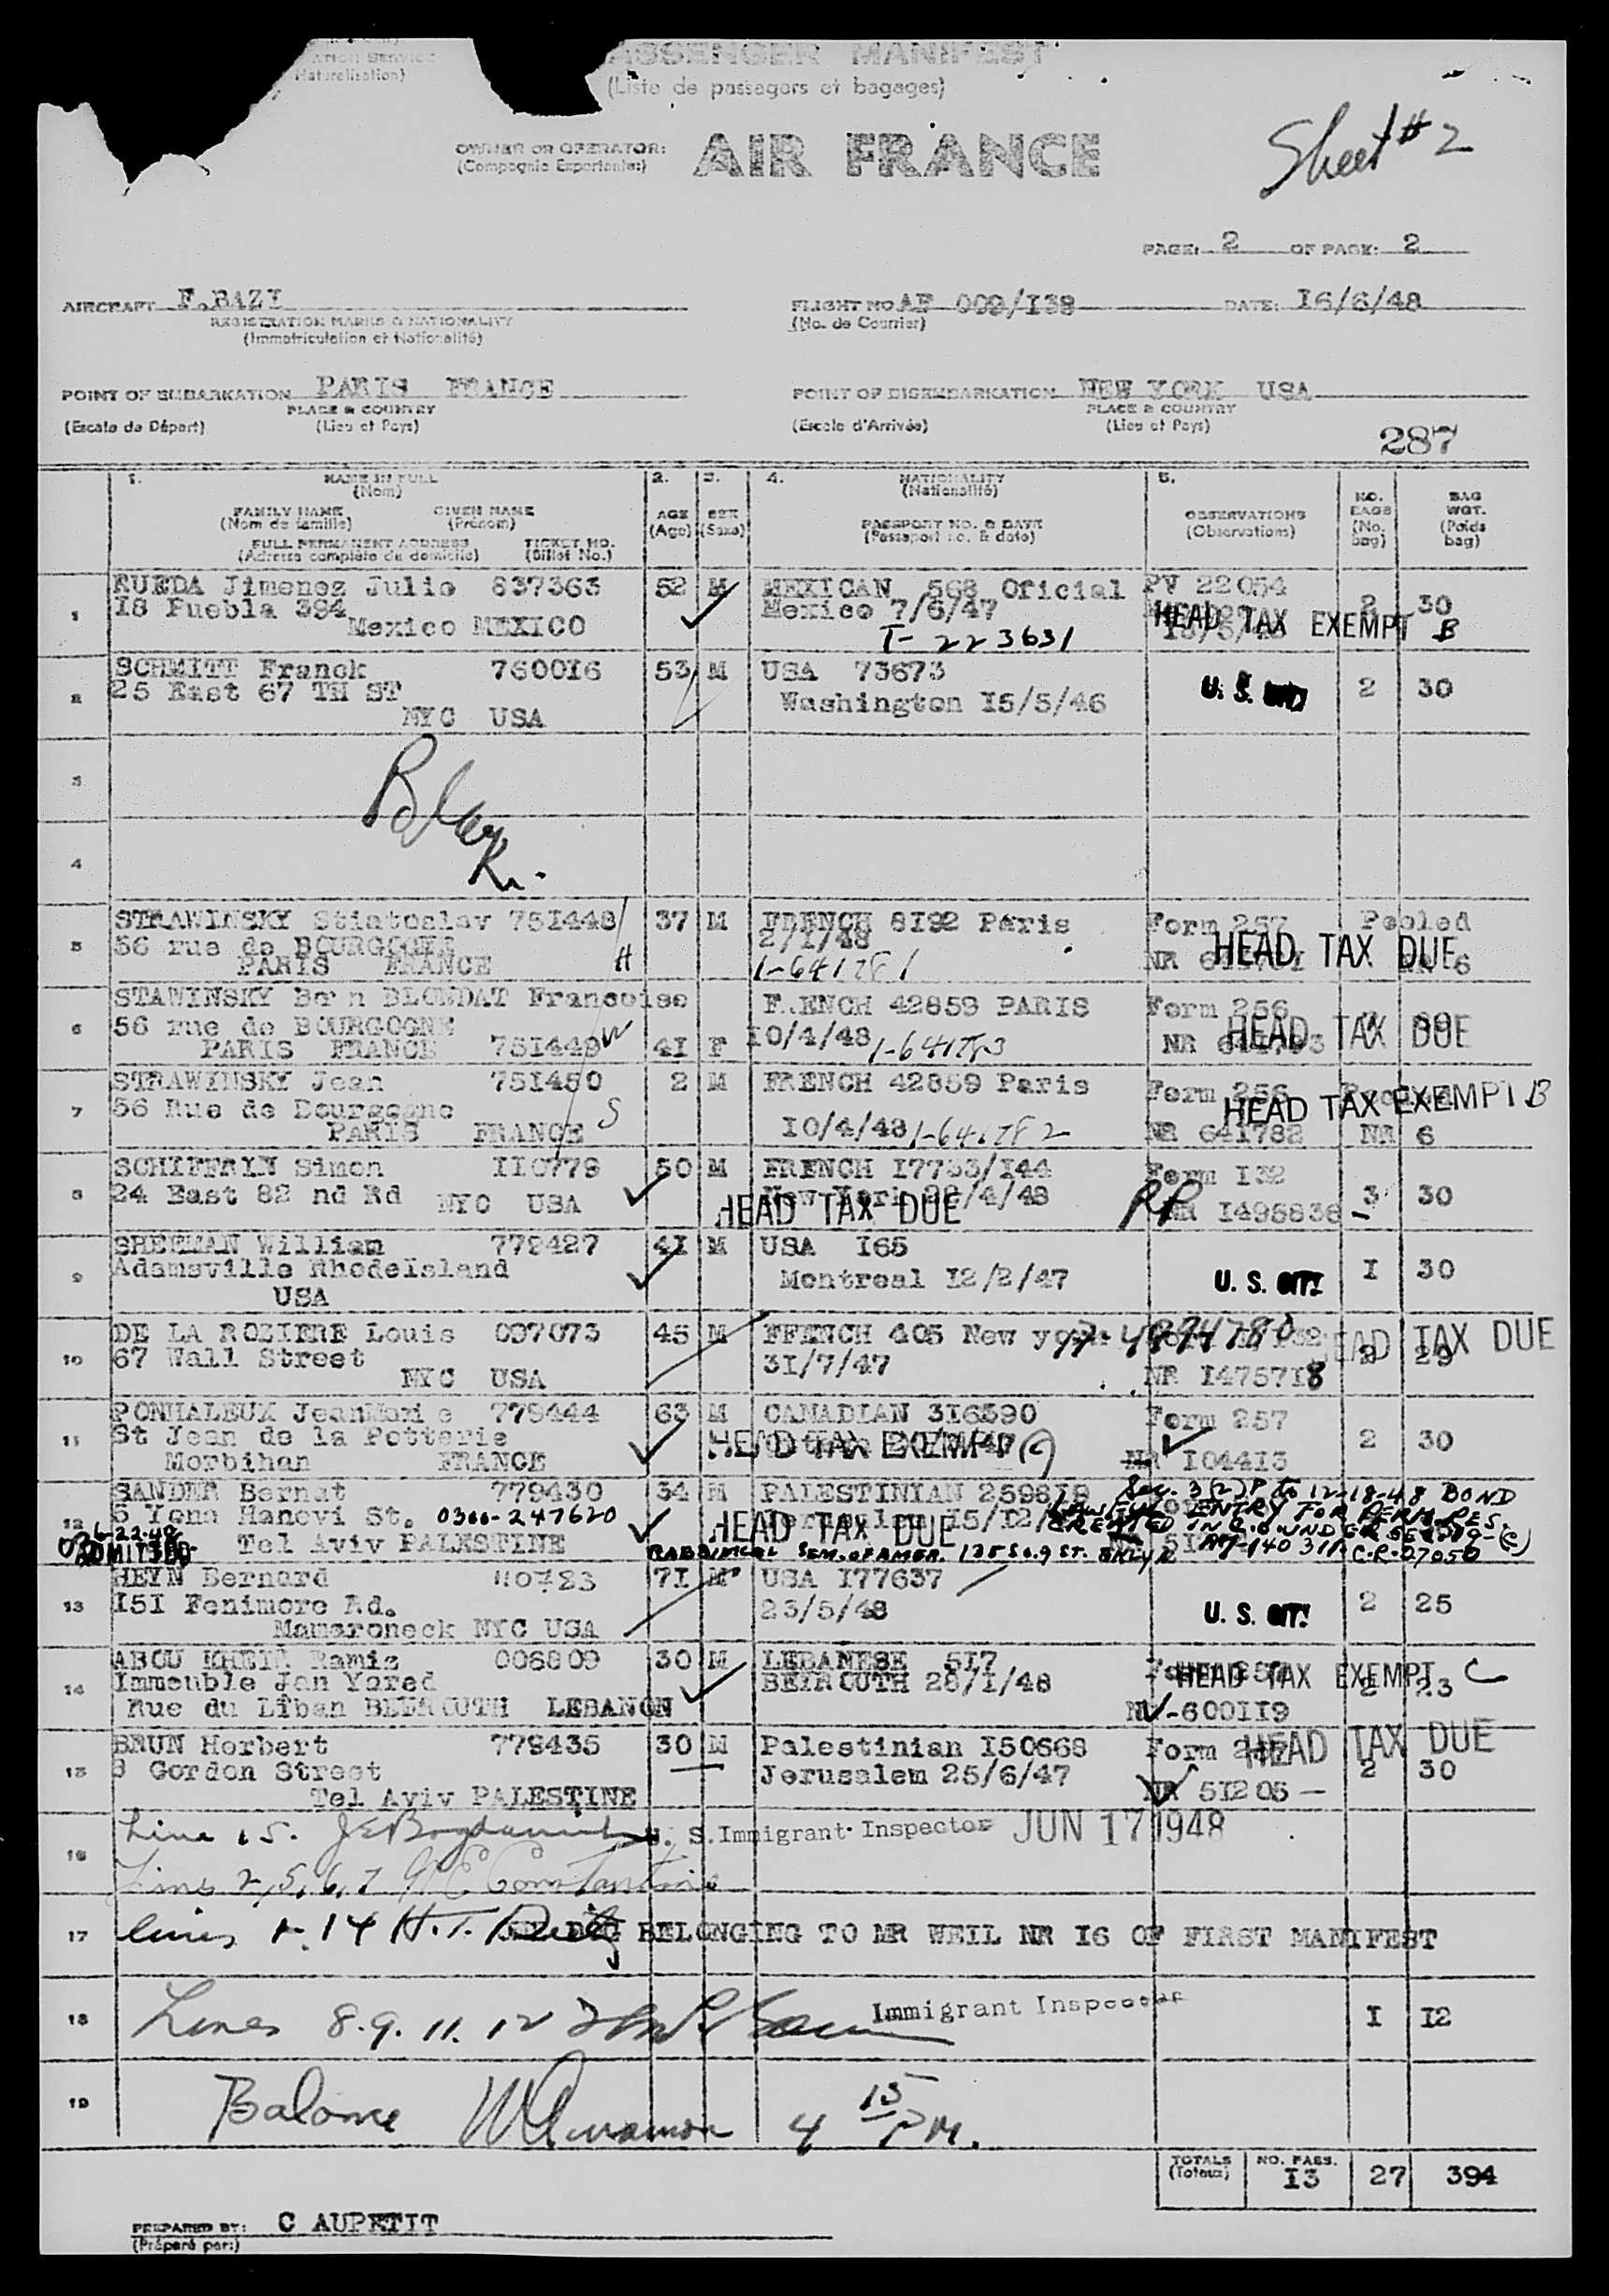 PASSENGER MANIFEST
Naturalisation)
(Liste de passagers et bagages)
OWNER OR OPERATOR: AIR FRANCE
(Compagnie Exportante:)
Sheet # 2
PAGE: 2 OF PAGE: 2
AIRCRAFT F.BAZI FLIGHT NO AF 009/138 DATE: I6/6/48
REGISTRATION MARKS & NATIONALITY (No. de Courrier)
(Immatriculation et Nationalité)
POINT OF EMBARKATION PARIS FRANCE POINT OF DISEMBARKATION NEW YORK USA
PLACE & COUNTRY PLACE & COUNTRY
(Escale de Départ) (Lieu et Pays) (Escale d'Arrivée) (Lieu et Pays)
287
1. NAME IN FULL 2. 3. 4. NATIONALITY 5.
(Nom) (Nationalité) NO. BAG
FAMILY NAME GIVEN NAME AGE SEX OBSERVATIONS BAGS WGT.
(Nom de famille) (Prénom) (Age) (Sexe) PASSPORT NO. & DATE (Observations) (No. (Poids
FULL PERMANENT ADDRESS TICKET NO. (Passeport no. & date) bag) bag)
(Adresse complète du domicile) (Billet No.)
1 RUEDA Jimenez Julio 837363 52 M MEXICAN 568 Oficial PV 22054
I8 Puebla 394 Mexico 7/6/47 HEAD TAX EXEMPT B 2 30
Mexico MEXICO T- 223631
2 SCHMITT Franck 760016 53 M USA 73673
25 East 67 TH ST Washington I5/5/46 U. S. 2 30
NYC USA
3
4
5 STRAWINSKY Stiatoslav 751448 37 M FRENCH 8I92 Paris Form 257 Pooled
56 rue de BOURGOGNE 2/1/48 HEAD TAX DUE
PARIS FRANCE H 1-641781 NR 6
6 STAWINSKY Born BLONDAT Francoise F.ENCH 42859 PARIS Form 256
56 rue de BOURGOGNE W I0/4/48 HEAD TAX DUE
PARIS FRANCE 751449 4I F 1-641783 NR 641783
7 STRAWINSKY Jean 751450 2 M FRENCH 42859 Paris Form 256
56 Rue de Bourgogne S HEAD TAX EXEMPT B
PARIS FRANCE I0/4/48 1-641782 NR 641782 NR 6
8 SCHIFFRIN Simon II0779 50 M FRENCH I7733/I44 Form I32
24 East 82 nd Rd New York /4/48 3 30
NYC USA HEAD TAX DUE RP NR I498838 -
9 SHEEHAN William 779427 4I M USA I65
Adamsville RhodeIsland Montreal I2/2/47 U. S. CIT. I 30
USA
10 DE LA ROZIERE Louis 007073 45 M FFENCH 405 New york HEAD TAX DUE
67 Wall Street 31/7/47 2 29
NYC USA NR I475718
11 PONHALEUX JeanMarie 779444 63 M CANADIAN 3I6590 Form 257
St Jean de la Potterie HEAD TAX EXEMPT (C) 2 30
Morbihan FRANCE NR I04413
12 SANDER Bernat 779430 34 M PALESTINIAN 259818 Sec. 3(2) P to 12-18-48 BOND
6 Yona Hanevi St. 0300-247620 Jerusalem I5/I2/ ENTRY FOR PERM. RES.
Tel Aviv PALESTINE HEAD TAX DUE CREATED IN
6-22-48 ADMITTED RABBINICAL SEM. OF AMER. 135 So. 9 ST. BKLYN C.R. 27050
13 HEYN Bernard 110783 71 M USA I77637
I5I Fenimore Rd. 23/5/48 U. S. CIT. 2 25
Mamaroneck NYC USA
14 ABOU KHEIR Ramiz 006809 30 M LEBANESE 5I7
Immeuble Jan Yared BEIROUTH 28/I/48 HEAD TAX EXEMPT C 2 23
Rue du Liban BEIROUTH LEBANON -600II9
15 BRUN Herbert 779435 30 M Palestinian I50668 Form HEAD TAX DUE
8 Gordon Street Jerusalem 25/6/47 2 30
Tel Aviv PALESTINE NR 5I205 -
16 Line 15. U. S. Immigrant Inspector JUN 17 1948
Lines 2, 5, 6, 7 Constantine
17 lines 1-14 H.T. BELONGING TO MR WEIL NR I6 OF FIRST MANIFEST
18 Lines 8. 9. 11. 12 Immigrant Inspector I I2
19 Balance 4 15 P.M.
TOTALS NO. PASS. 27 394
(Totaux) I3
PREPARED BY: C AUPETIT
(Préparé par:)